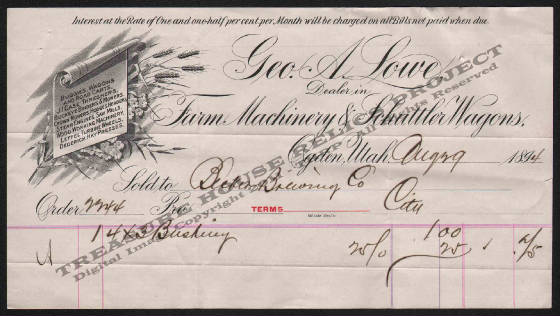 Interest at the Rate of One and one-half per cent, per Month will be charged on all Bills not paid when due.
BUGGIES, WAGONS
AND ROAD CARTS,
CASE THRESHERS,
BUCKEYE BINDERS & MOWERS,
STEAM ENGINES, SAW MILLS,
WOOD WORKING MACHINERY,
LEFFEL TURBINE WHEELS,
DEDERICK HAY PRESSES.
Geo. A. Lowe,
Dealer in
Farm Machinery & Schuttler Wagons.
Ogden, Utah, Aug 29 1894
Sold to Becker Brewing Co
Order 2244 Per City
TERMS
14 x 3 Bushing 1 00
25% 25 75
TREASURE HOUSE RELICS PROJECT
Digital Image Copyright All Rights Reserved